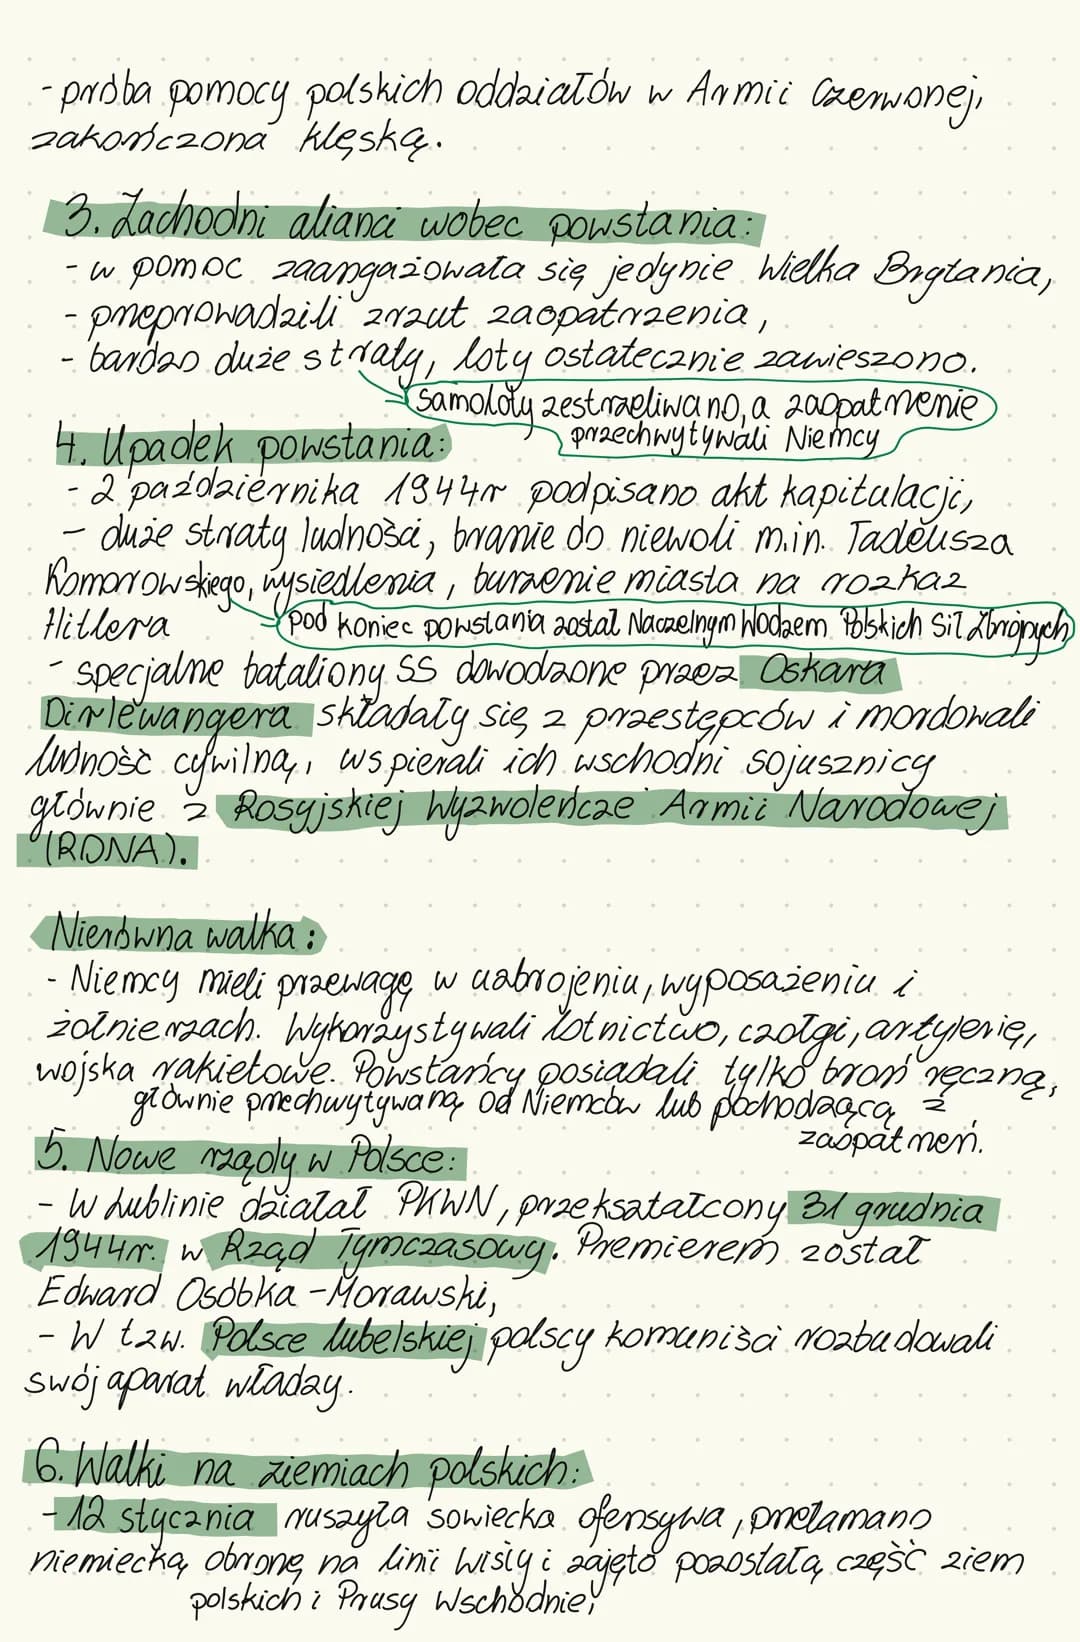 - próba pomocy polskich oddziałów w Armii Czerwonej,
zakończona klęską.
3. Zachodni alianci wobec powstania:
- w pomoc zaangażowała się jedynie Wielka Brytania,
- przeprowadzili zrzut zaopatrzenia,
- bardzo duże straty, loty ostatecznie zawieszono.
samoloty zestrzeliwano, a zaopatrzenie
przechwytywali Niemcy
4. Upadek powstania:
- 2 października 1944r podpisano akt kapitulacji,
- duże straty ludności, branie do niewoli m.in. Tadeusza
Komorowskiego, wysiedlenia, burzenie miasta na rozkaz
Hitlera
pod koniec powstania został Naczelnym Wodzem Polskich Sił Zbrojnych
- specjalne bataliony SS dowodzone przez Oskara
Dirlewangera składały się z przestępców i mordowali
ludność cywilną, wspierali ich wschodni sojusznicy
głównie z Rosyjskiej Wyzwoleńcze Armii Narodowej
(RONA).
Nierówna walka:
- Niemcy mieli przewagę w uzbrojeniu, wyposażeniu i
żołnierzach. Wykorzystywali lotnictwo, czołgi, artylerię,
wojska rakietowe. Powstańcy posiadali tylko broń ręczną,
głównie przechwytywaną od Niemców lub pochodzącą z
zaopatrzeń.
5. Nowe rządy w Polsce:
- W Lublinie działał PKWN, przekształcony 31 grudnia
1944r. w Rząd Tymczasowy. Premierem został
Edward Osóbka-Morawski,
- W tzw. Polsce lubelskiej polscy komuniści rozbudowali
swój aparat władzy.
6. Walki na ziemiach polskich:
- 12 stycznia ruszyła sowiecka ofensywa, przełamano
niemiecką obronę na linii Wisły i zajęto pozostałą część ziem
polskich i Prusy Wschodnie,